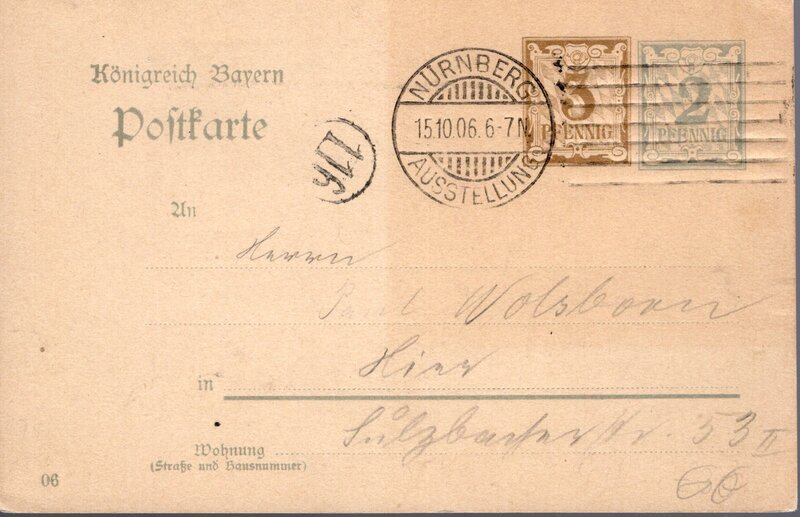 Königreich Bayern
Postkarte
NÜRNBERG
15.10.06. 6-7 N.
AUSSTELLUNG
3
PFENNIG
2
PFENNIG
An
Herrn
Paul Wolsborn
in Hier
Sulzbacherstr. 53 II
Wohnung
(Straße und Hausnummer)
06